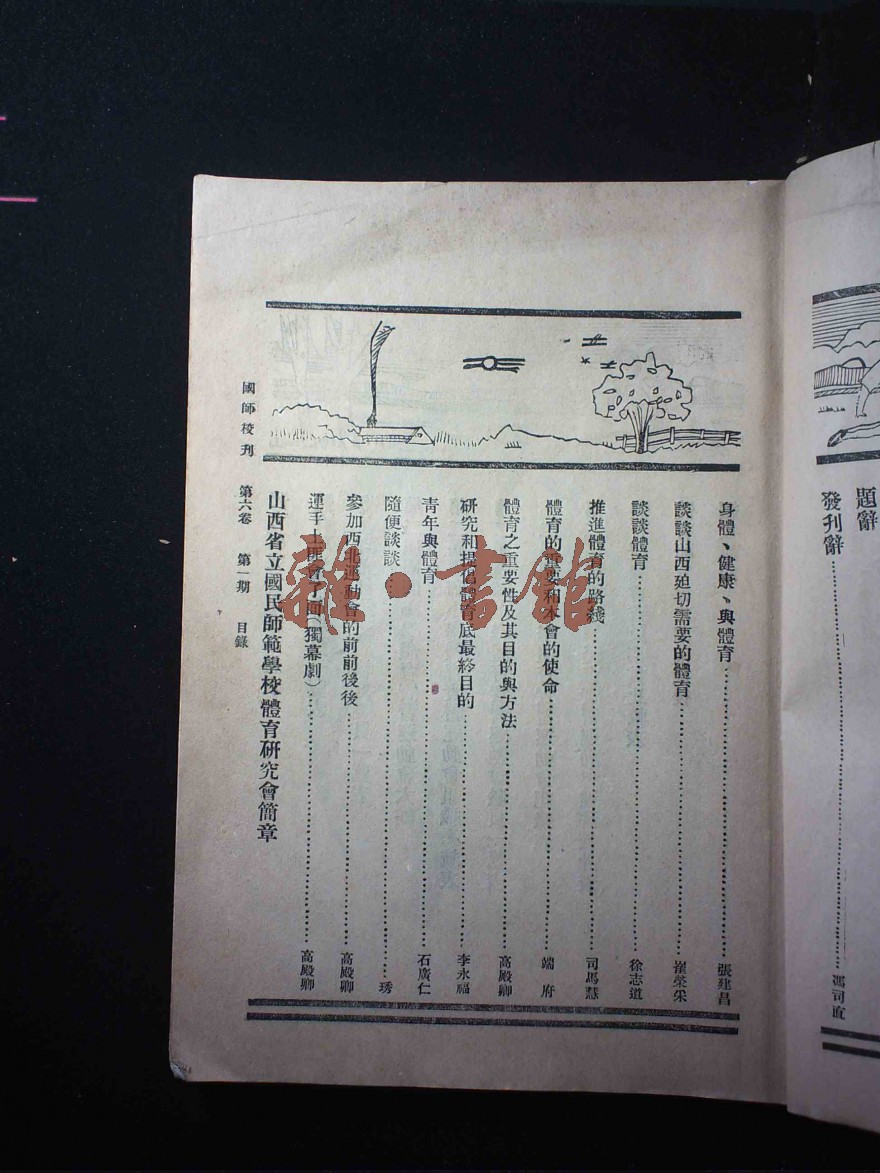 題辭
發刊辭 馮司直
身體、健康、與體育 張建昌
談談山西廹切需要的體育 崔榮采
談談體育 徐志道
推進體育的路綫 司馬慧
體育的重要和本會的使命 端府
體育之重要性及其目的與方法 高殿卿
研究和提倡體育底最終目的 李永福
青年與體育 石廣仁
隨便談談 琇
參加西北運動會的前前後後 高殿卿
運手上匪會了面(獨幕劇) 高殿卿
山西省立國民師範學校體育研究會簡章
國師校刊 第六卷 第一期 目錄
雜·書館